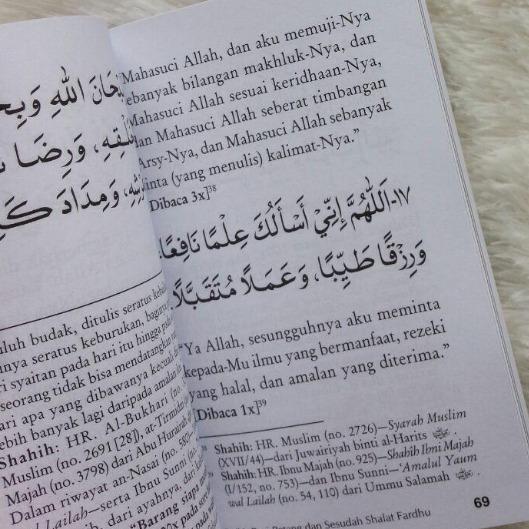 حَانَ اللهِ وَبِحَ
لْقِهِ، وَرِضَا
وَمِدَادَ كَ
luluh budak, ditulis seratus
nya seratus keburukan,
ri syaitan pada hari itu hingga
seorang tidak bisa mendatangkan
ari apa yang dibawanya kecuali
ebih banyak lagi daripada amalan
Shahih: HR. Al-Bukhari (no.
Muslim (no. 2691 [28]), at-Tirmidzi
Majah (no. 3798) dari Abu Hurairah
Dalam riwayat an-Nasai (no. 580—
Lailah—serta Ibnu Sunni (no.
ib, dari ayahnya, dari
"Barang siapa
0x pada
"Mahasuci Allah, dan aku memuji-Nya
sebanyak bilangan makhluk-Nya, dan
Mahasuci Allah sesuai keridhaan-Nya,
dan Mahasuci Allah seberat timbangan
'Arsy-Nya, dan Mahasuci Allah sebanyak
tinta (yang menulis) kalimat-Nya."
[Dibaca 3x]³⁸
١٧-اَللّٰهُمَّ إِنِّيْ أَسْأَلُكَ عِلْمًا نَافِعًا،
وَرِزْقًا طَيِّبًا، وَعَمَلًا مُتَقَبَّلًا
"Ya Allah, sesungguhnya aku meminta
kepada-Mu ilmu yang bermanfaat, rezeki
yang halal, dan amalan yang diterima."
[Dibaca 1x]³⁹
Shahih: HR. Muslim (no. 2726)—Syarah Muslim
(XVII/44)—dari Juwairiyah binti al-Harits
Shahih: HR. Ibnu Majah (no. 925)—Shahih Ibni Majah
(I/152, no. 753)—dan Ibnu Sunni—'Amalul Yaum
wal Lailah (no. 54, 110) dari Ummu Salamah
Petang dan Sesudah Shalat Fardhu
69